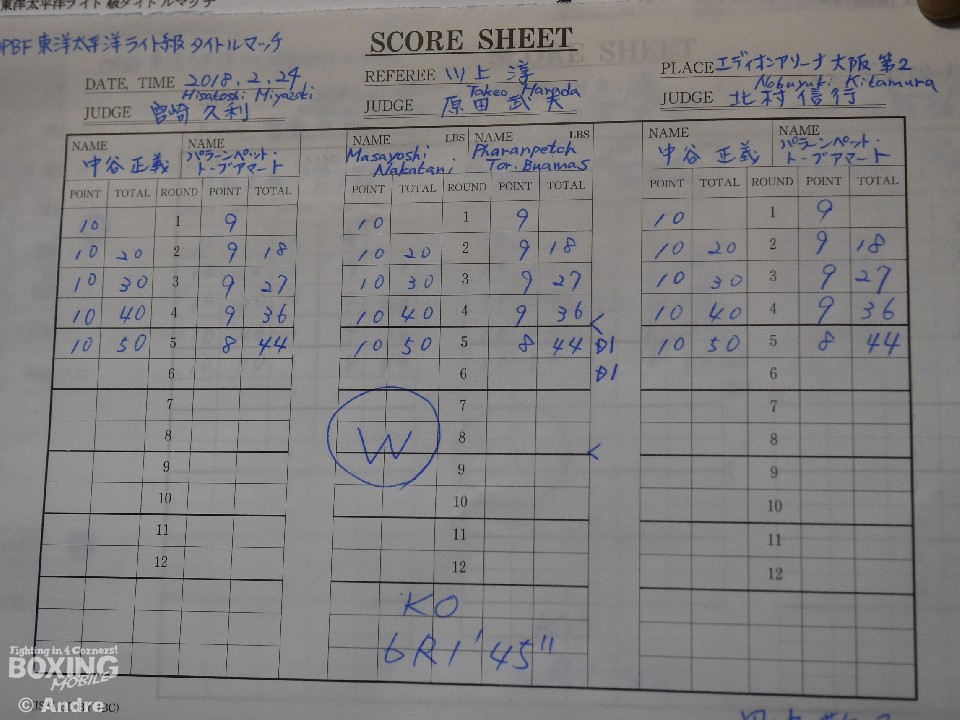 東洋太平洋ライト級タイトルマッチ
OPBF 東洋太平洋ライト級 タイトルマッチ
SCORE SHEET
DATE, TIME 2018.2.24
REFEREE 川上 淳
PLACE エディオンアリーナ大阪 第2
Hisatoshi Miyazaki
Takeo Harada
Nobuyuki Kitamura
JUDGE 宮崎 久利
JUDGE 原田 武夫
JUDGE 北村 信行
NAME NAME NAME LBS NAME LBS NAME NAME
中谷 正義 パラーンペット・トーブアマート Masayoshi Nakatani Pharanpetch Tor. Buamas 中谷 正義 パラーンペット・トーブアマート
POINT TOTAL ROUND POINT TOTAL POINT TOTAL ROUND POINT TOTAL POINT TOTAL ROUND POINT TOTAL
10 1 9 10 1 9 10 1 9
10 20 2 9 18 10 20 2 9 18 10 20 2 9 18
10 30 3 9 27 10 30 3 9 27 10 30 3 9 27
10 40 4 9 36 10 40 4 9 36 < 10 40 4 9 36
10 50 5 8 44 10 50 5 8 44 D1 10 50 5 8 44
6 6 D1 6
7 7 7
8 W 8 < 8
9 9 9
10 10 10
11 11 11
12 12 12
KO
6R1'45"
Fighting in 4 Corners!
BOXING
MOBILE
© Andre